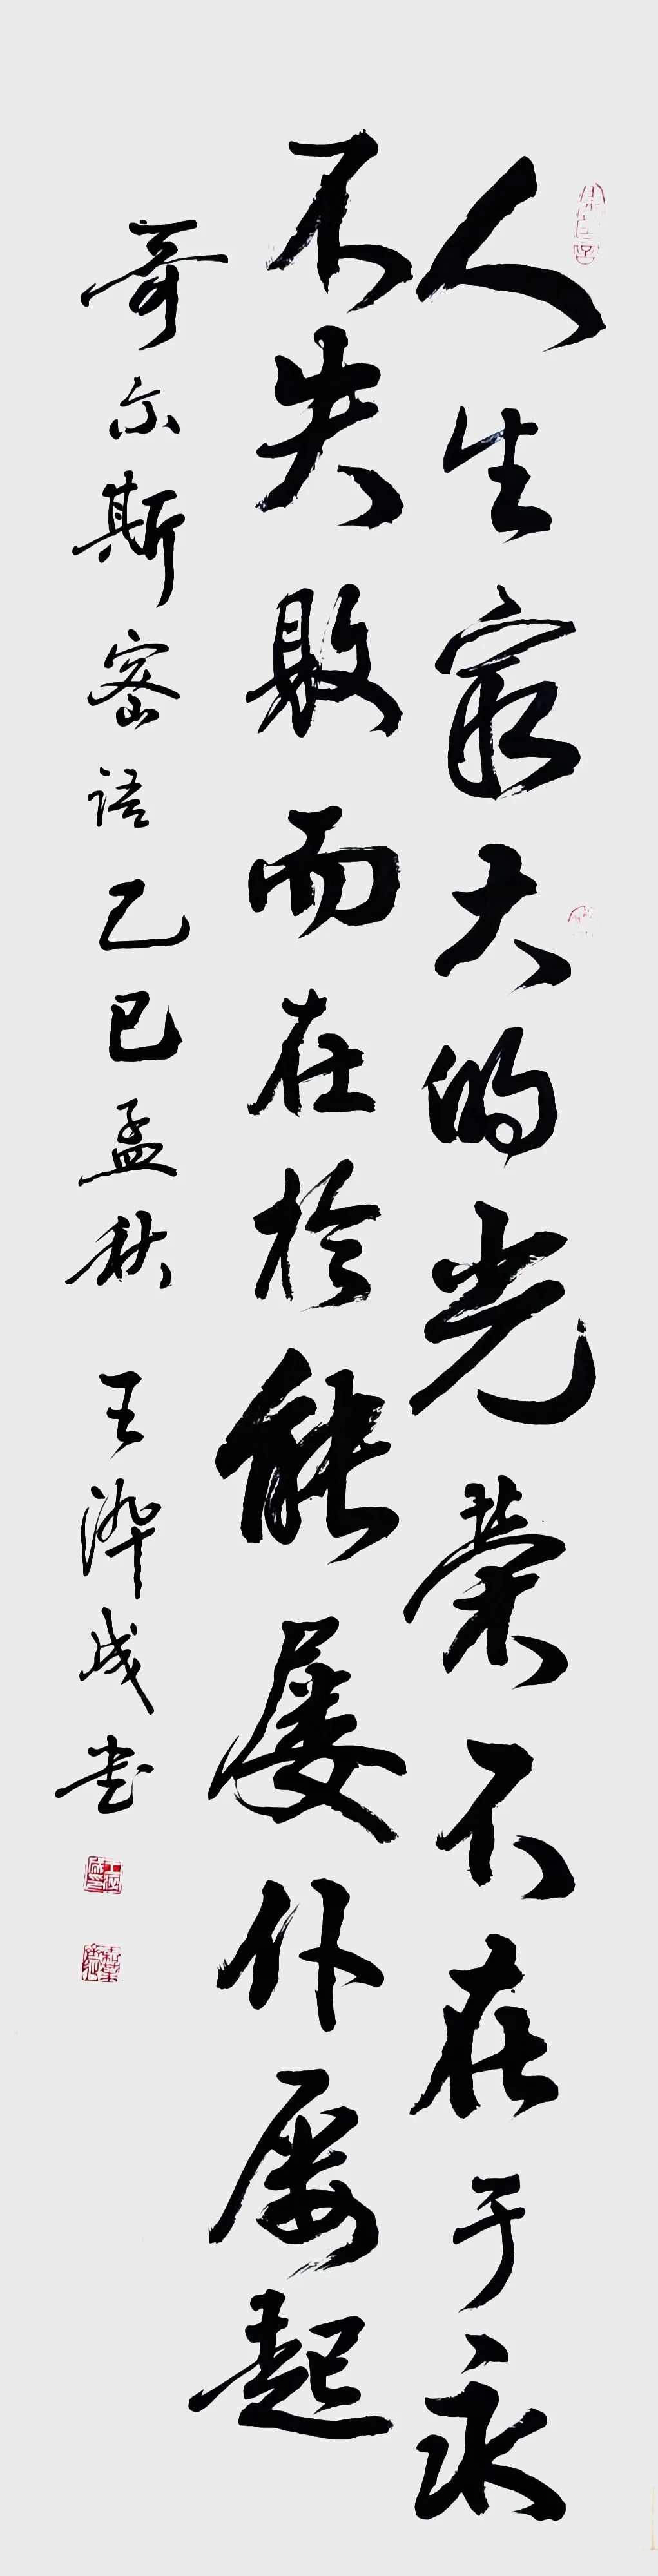 人生最大的光荣不在于永
不失败而在於能屡仆屡起
哥尔斯密语乙巳孟秋 王泽成书